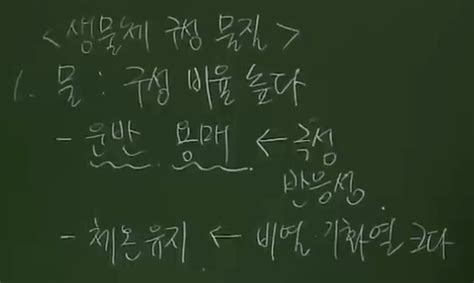 <생물체 구성 물질>
1. 물 : 구성 비율 높다
- 운반 용매 ← 극성
반응성
- 체온유지 ← 비열·기화열 크다